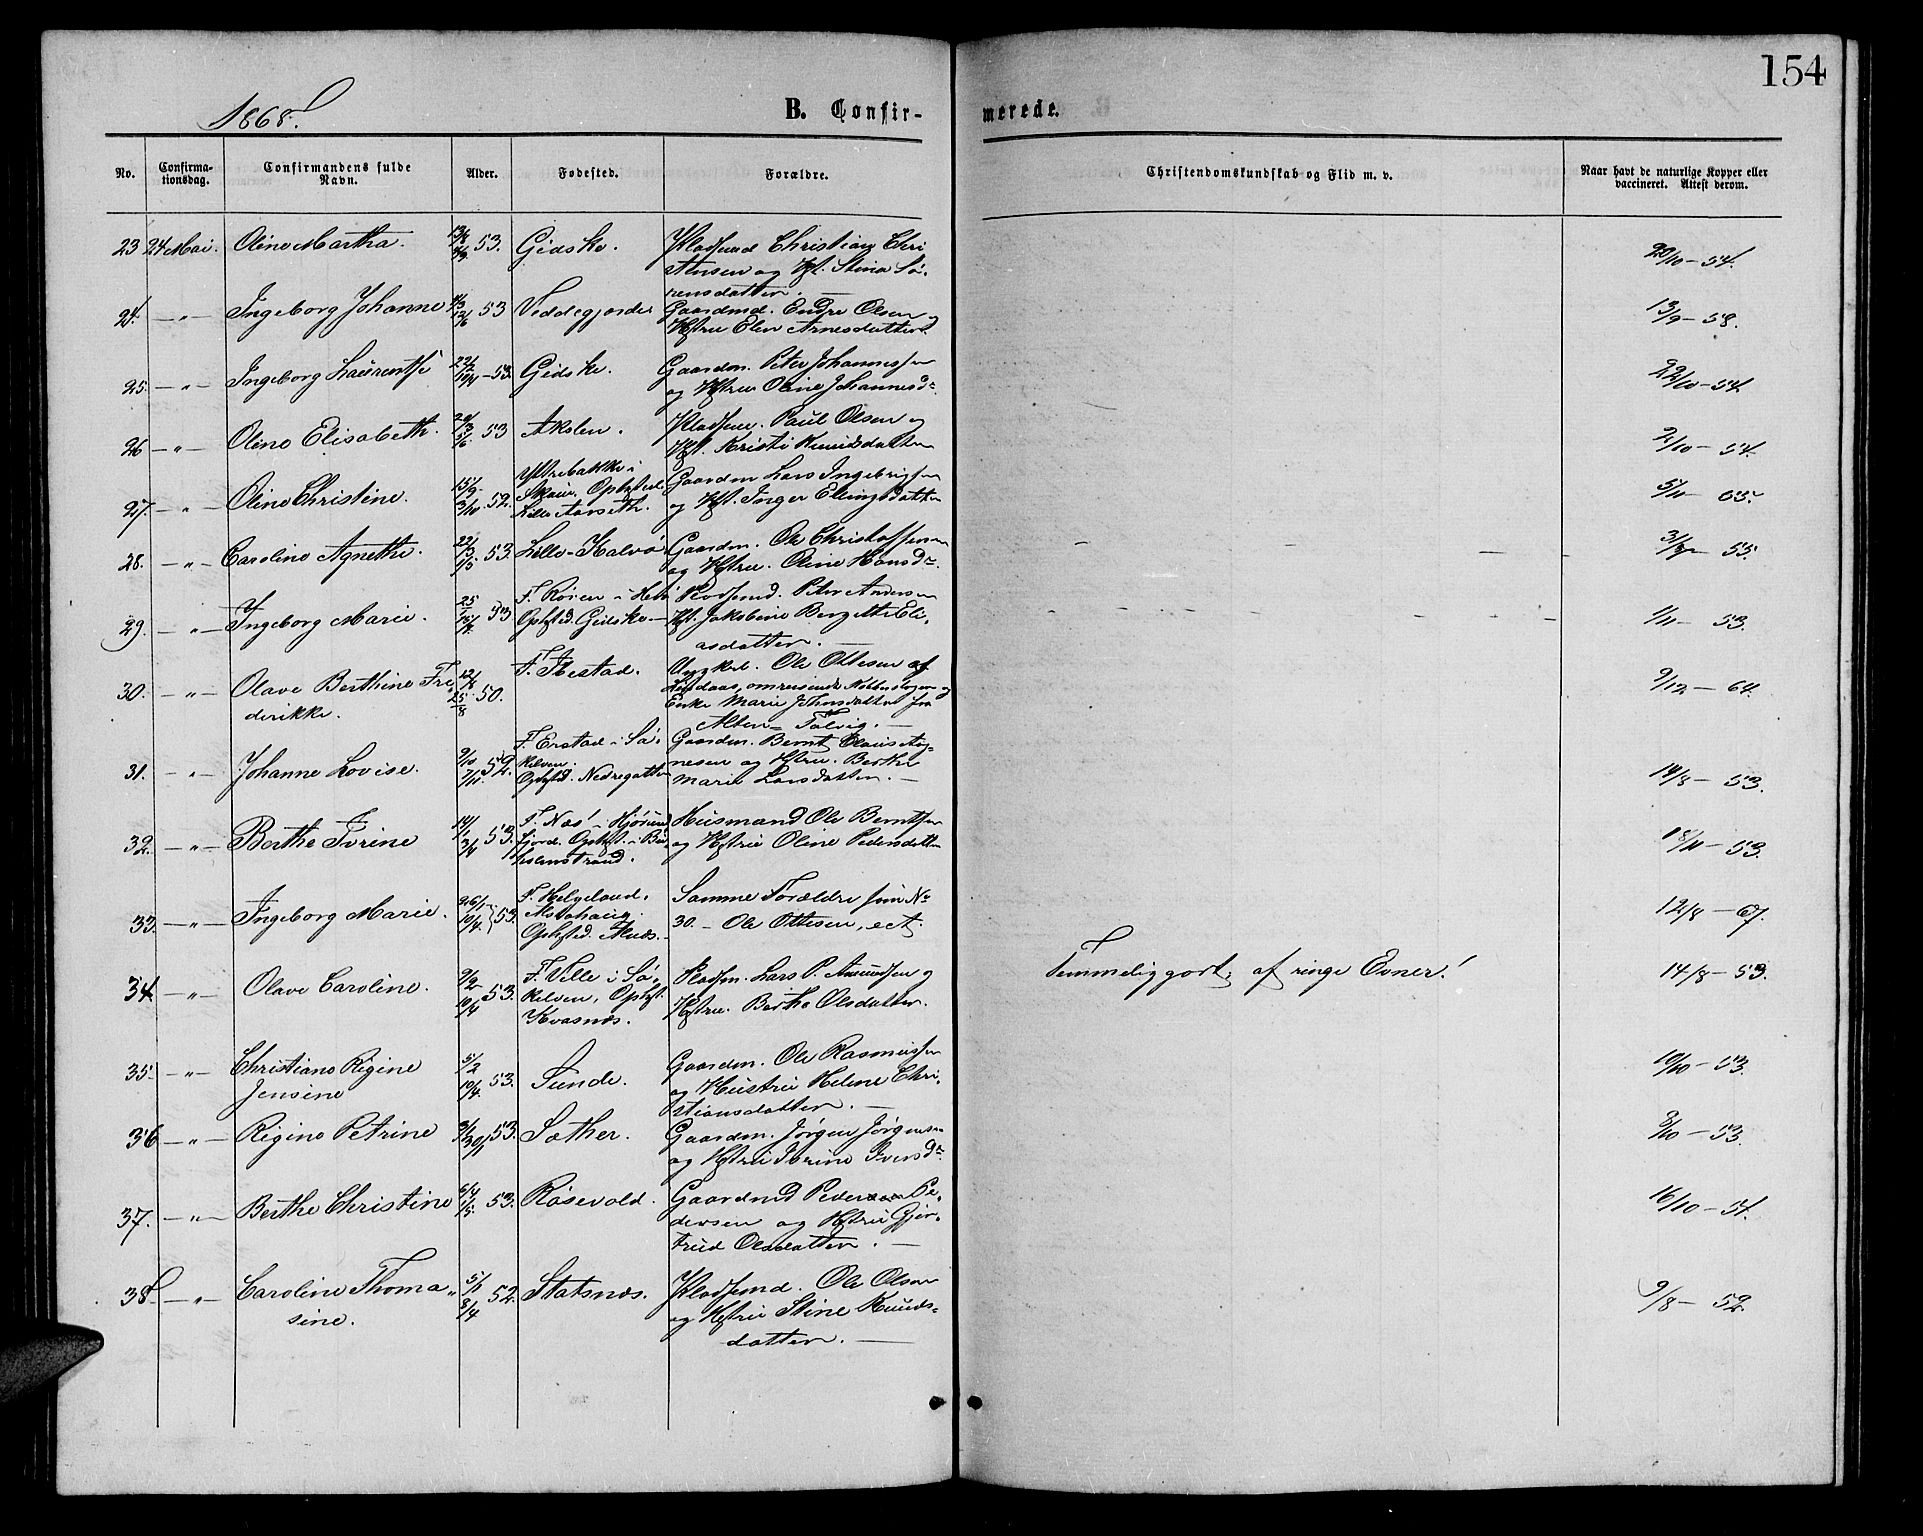 154
1868.
B. Confir-
merede.
No.
Confirma-
tionsdag.
Confirmandens fulde
Navn.
Alder.
Fødested.
Forældre.
Christendomskundskab og Flid m. v.
Naar havt de naturlige Kopper eller
vaccineret. Attest derom.
23 24 Mai. Oline Martha. 53. Gidske. Pladsmd Christian Chri
stensen og Hst. Stina Sø-
rensdatter. —
20/10 - 54.
24. — " — Ingeborg Johanne 53 Gaardmd. Endre Olsen og
Hstru Elen Arnesdatter.
13/9 - 58.
25. — " — Ingeborg Laurentse 53. Gidske. Gaardm. Peter Johannessen
og Hstru Oline Johannesdr.
22/10 - 54.
26 — " — Oline Elisabeth. 53 Akslen. Pladsm. Paul Olsen og
Hst. Kristi Knudsdatter
2/10 - 54.
27. — " — Oline Christine. 52. Ytrebakke i
Skoue. Ophstd.
Lille Aarseth.
Gaardm Lars Ingebrigtsen
og Hst. Inger Elingsdatter
5/11 - 65.
28. — " — Caroline Agnethe. 53. Lille-Kalvø. Gaardm. Ole Christoffersen
og Hstru. Oline Hansdr.
55.
29. — " — Ingeborg Marie. 53 F. Røren i
Ophstd. Gidske —
Pladsmd. Peter Andersen
Hst. Jakobine Bergitte Eli-
asdatter. —
1/11 - 53.
30. — " — Olave Berthine Fre
derikke.
50. F. Ibestad. Ungkel. Ole Ottesen af
omreisende Kobberslager og
Enke Marie Johnsdatter fra
Alten - Talvig. —
9/12 - 64.
31. — " — Johanne Lovise. 9/10 7/11 52. F. Erstad i Sø-
kelven.
Ophstd. Nedregotten
Gaardm. Bernt Claus Ag-
nesen og Hstru. Berthe
Marie Larsdatter. —
14/8 - 53.
32. — " — Berthe Iverine 53. F. Næs i Hjørund
fjord. Ophst. i
Husmand Ole Berntsen
og Hstru Oline Pedersdatter
18/11 - 53.
33. — " — Ingeborg Marie. 26/1 10/4 53. F. Helgeland,
Alstahaug.
Ophstd. Alnæs. -
Samme Forældre som No
30. - Ole Ottesen, ect.
12/8 - 67.
34 — " — Olave Caroline. 9/2 10/4 53. F. Velle i Sø-
kelven, Ophst.
Kvasnæs.
Pladsm. Lars P. Amundsen og
Hstru. Berthe Olsdatter.
Temmelig godt; af ringe Evner!
14/8 - 53.
35. — " — Christiane Rigine
Jensine
5/2 10/4 53. Sunde. Gaardm. Ole Rasmussen
og Hustru Helene Chri-
stiansdatter. —
10/10 - 53.
36 — " — Rigine Petrine 53. Sæther. Gaardm. Jørgen Jørgensen
og Hstru Iverine Iversdr.
53.
37. — " — Berthe Christine 53. Røsevold. Gaardmd Peder Pe-
dersen og Hstru Gjer-
trud Olsdatter. —
16/10 - 54.
38. — " — Caroline Thoma-
sine.
52. Statsnæs. Pladsmd. Ole Olsen
og Hstru Stine Knuds-
datter. —
9/8 - 52.